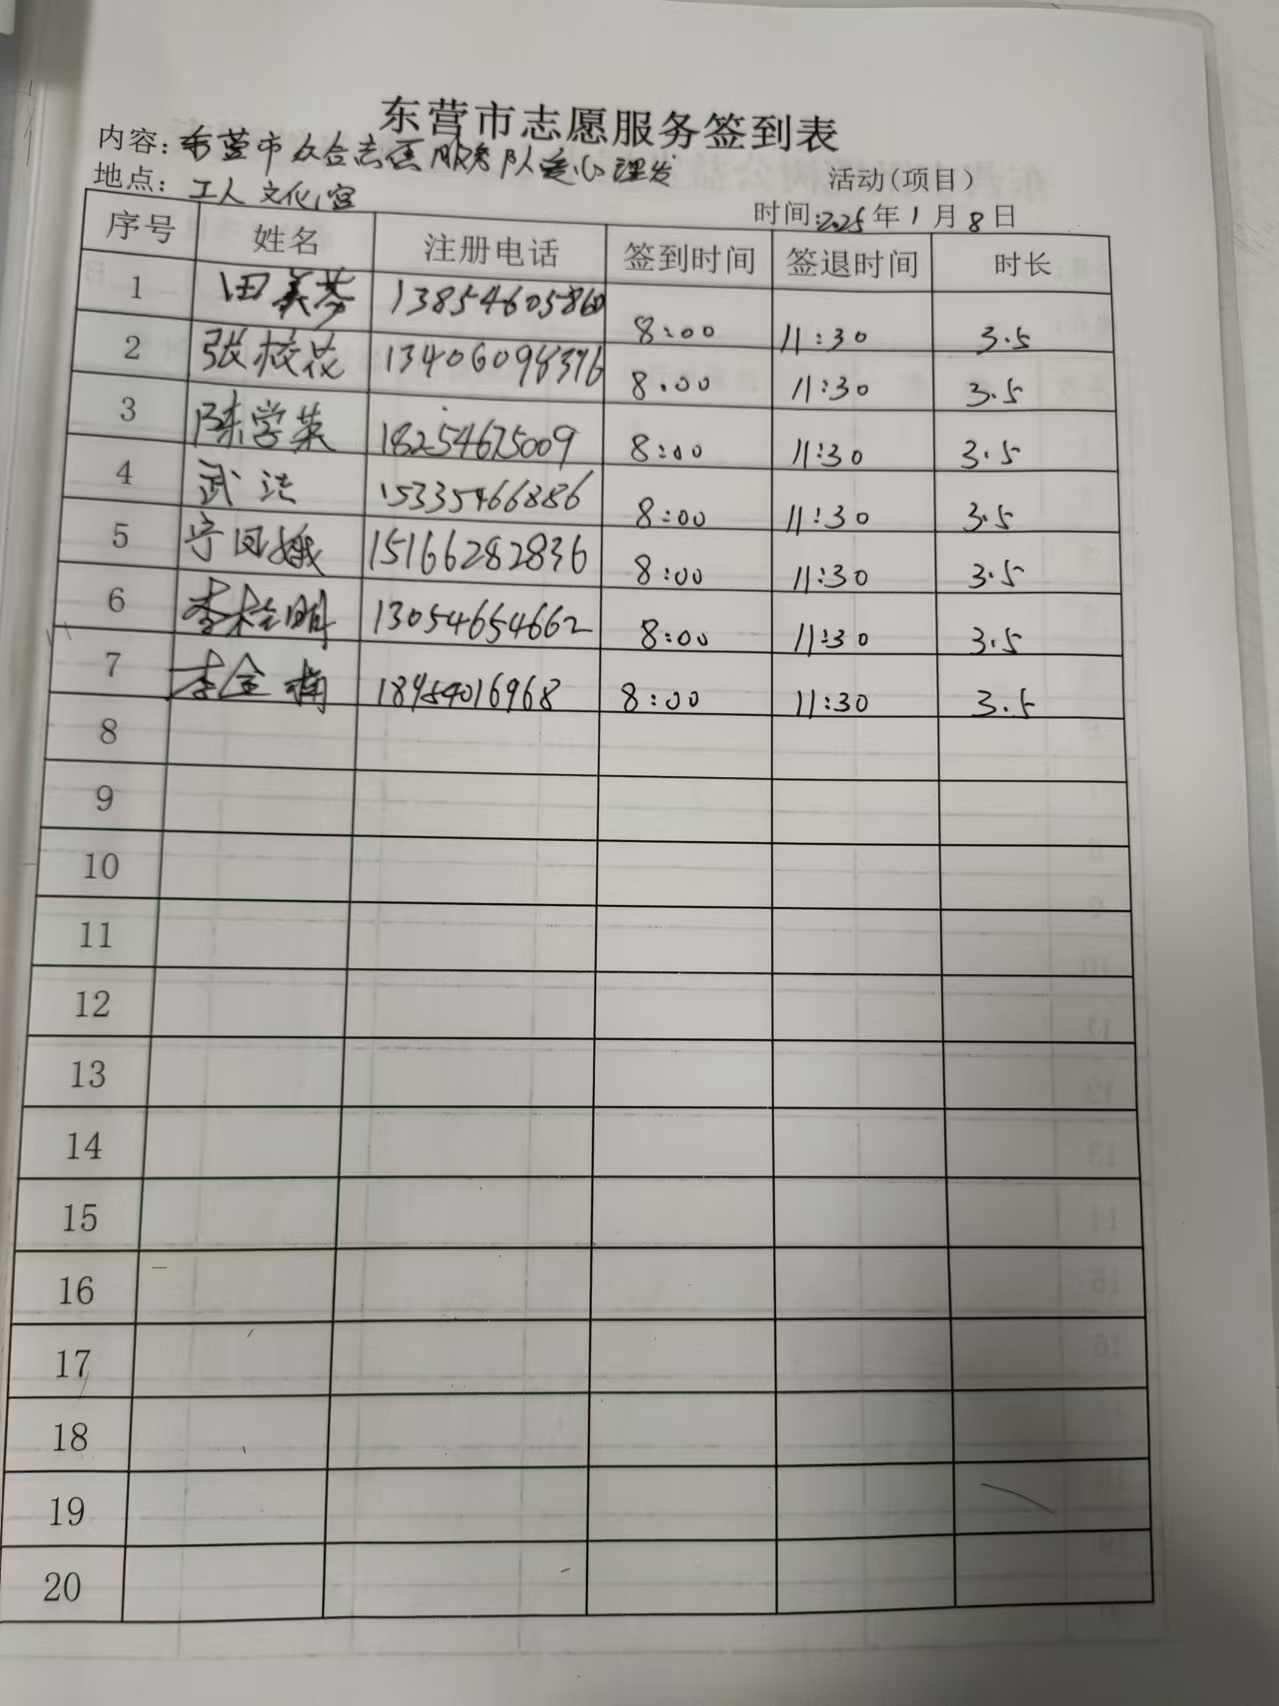 东营市志愿服务签到表
内容: 东营市众合志愿服务队爱心理发 活动(项目)
地点: 工人文化宫 时间: 2025年1月8日
序号 姓名 注册电话 签到时间 签退时间 时长
1 田美芬 13854605860 8:00 11:30 3.5
2 张校花 13406098376 8:00 11:30 3.5
3 陈学英 18254675009 8:00 11:30 3.5
4 武洁 15335466886 8:00 11:30 3.5
5 宁凤娥 15166282836 8:00 11:30 3.5
6 李桂明 13054654662 8:00 11:30 3.5
7 李金楠 18954016968 8:00 11:30 3.5
8
9
10
11
12
13
14
15
16
17
18
19
20